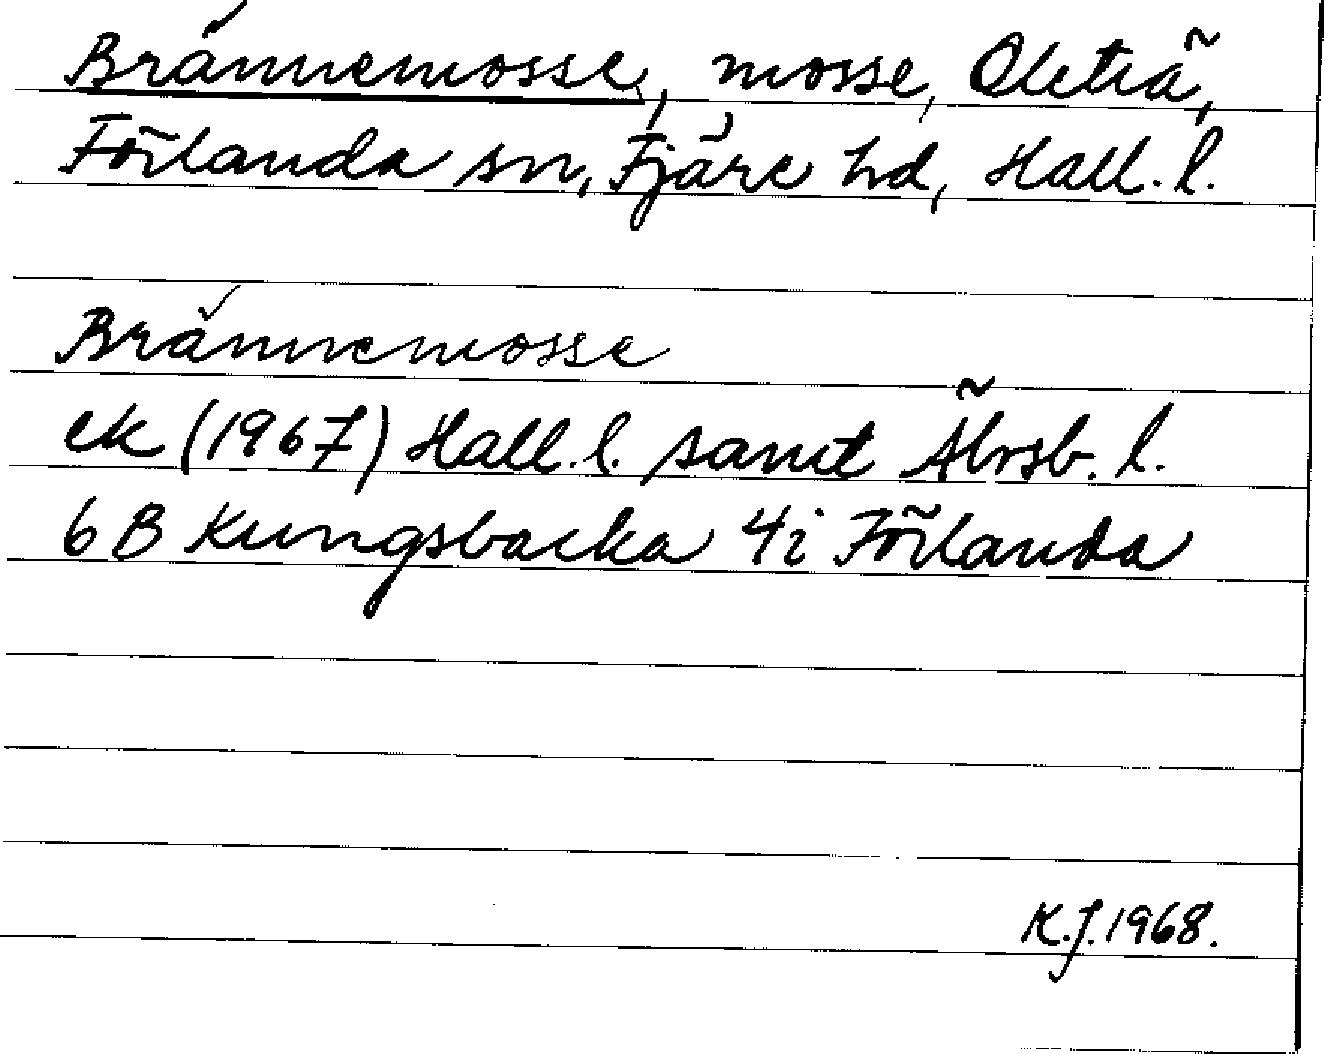 Brännemosse, mosse, Oleträ,
Förlanda sn, Fjäre hd, Hall. l.
Brännemosse
ek (1967) Hall. l. samt Älvsb. l.
6 B Kungsbacka 4i Förlanda
K.J. 1968.